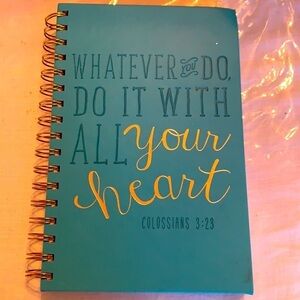 WHATEVER YOU DO,
DO IT WITH
ALL your
heart
COLOSSIANS 3:23